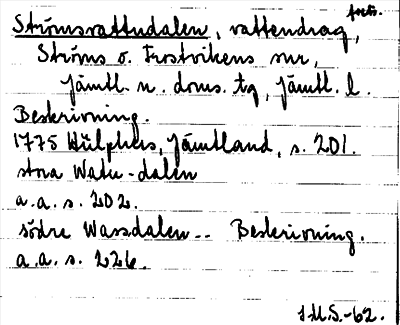 forts.
Strömsvattudalen, vattendrag,
Ströms o. Frostvikens snr,
Jämtl. n. doms. tg, Jämtl. l.
Beskrivning.
1775 Hülphers, Jämtland, s. 201.
stora Watu-dalen
a.a. s. 202.
södre Wassdalen -- Beskrivning.
a.a. s. 226.
IMS.-62.